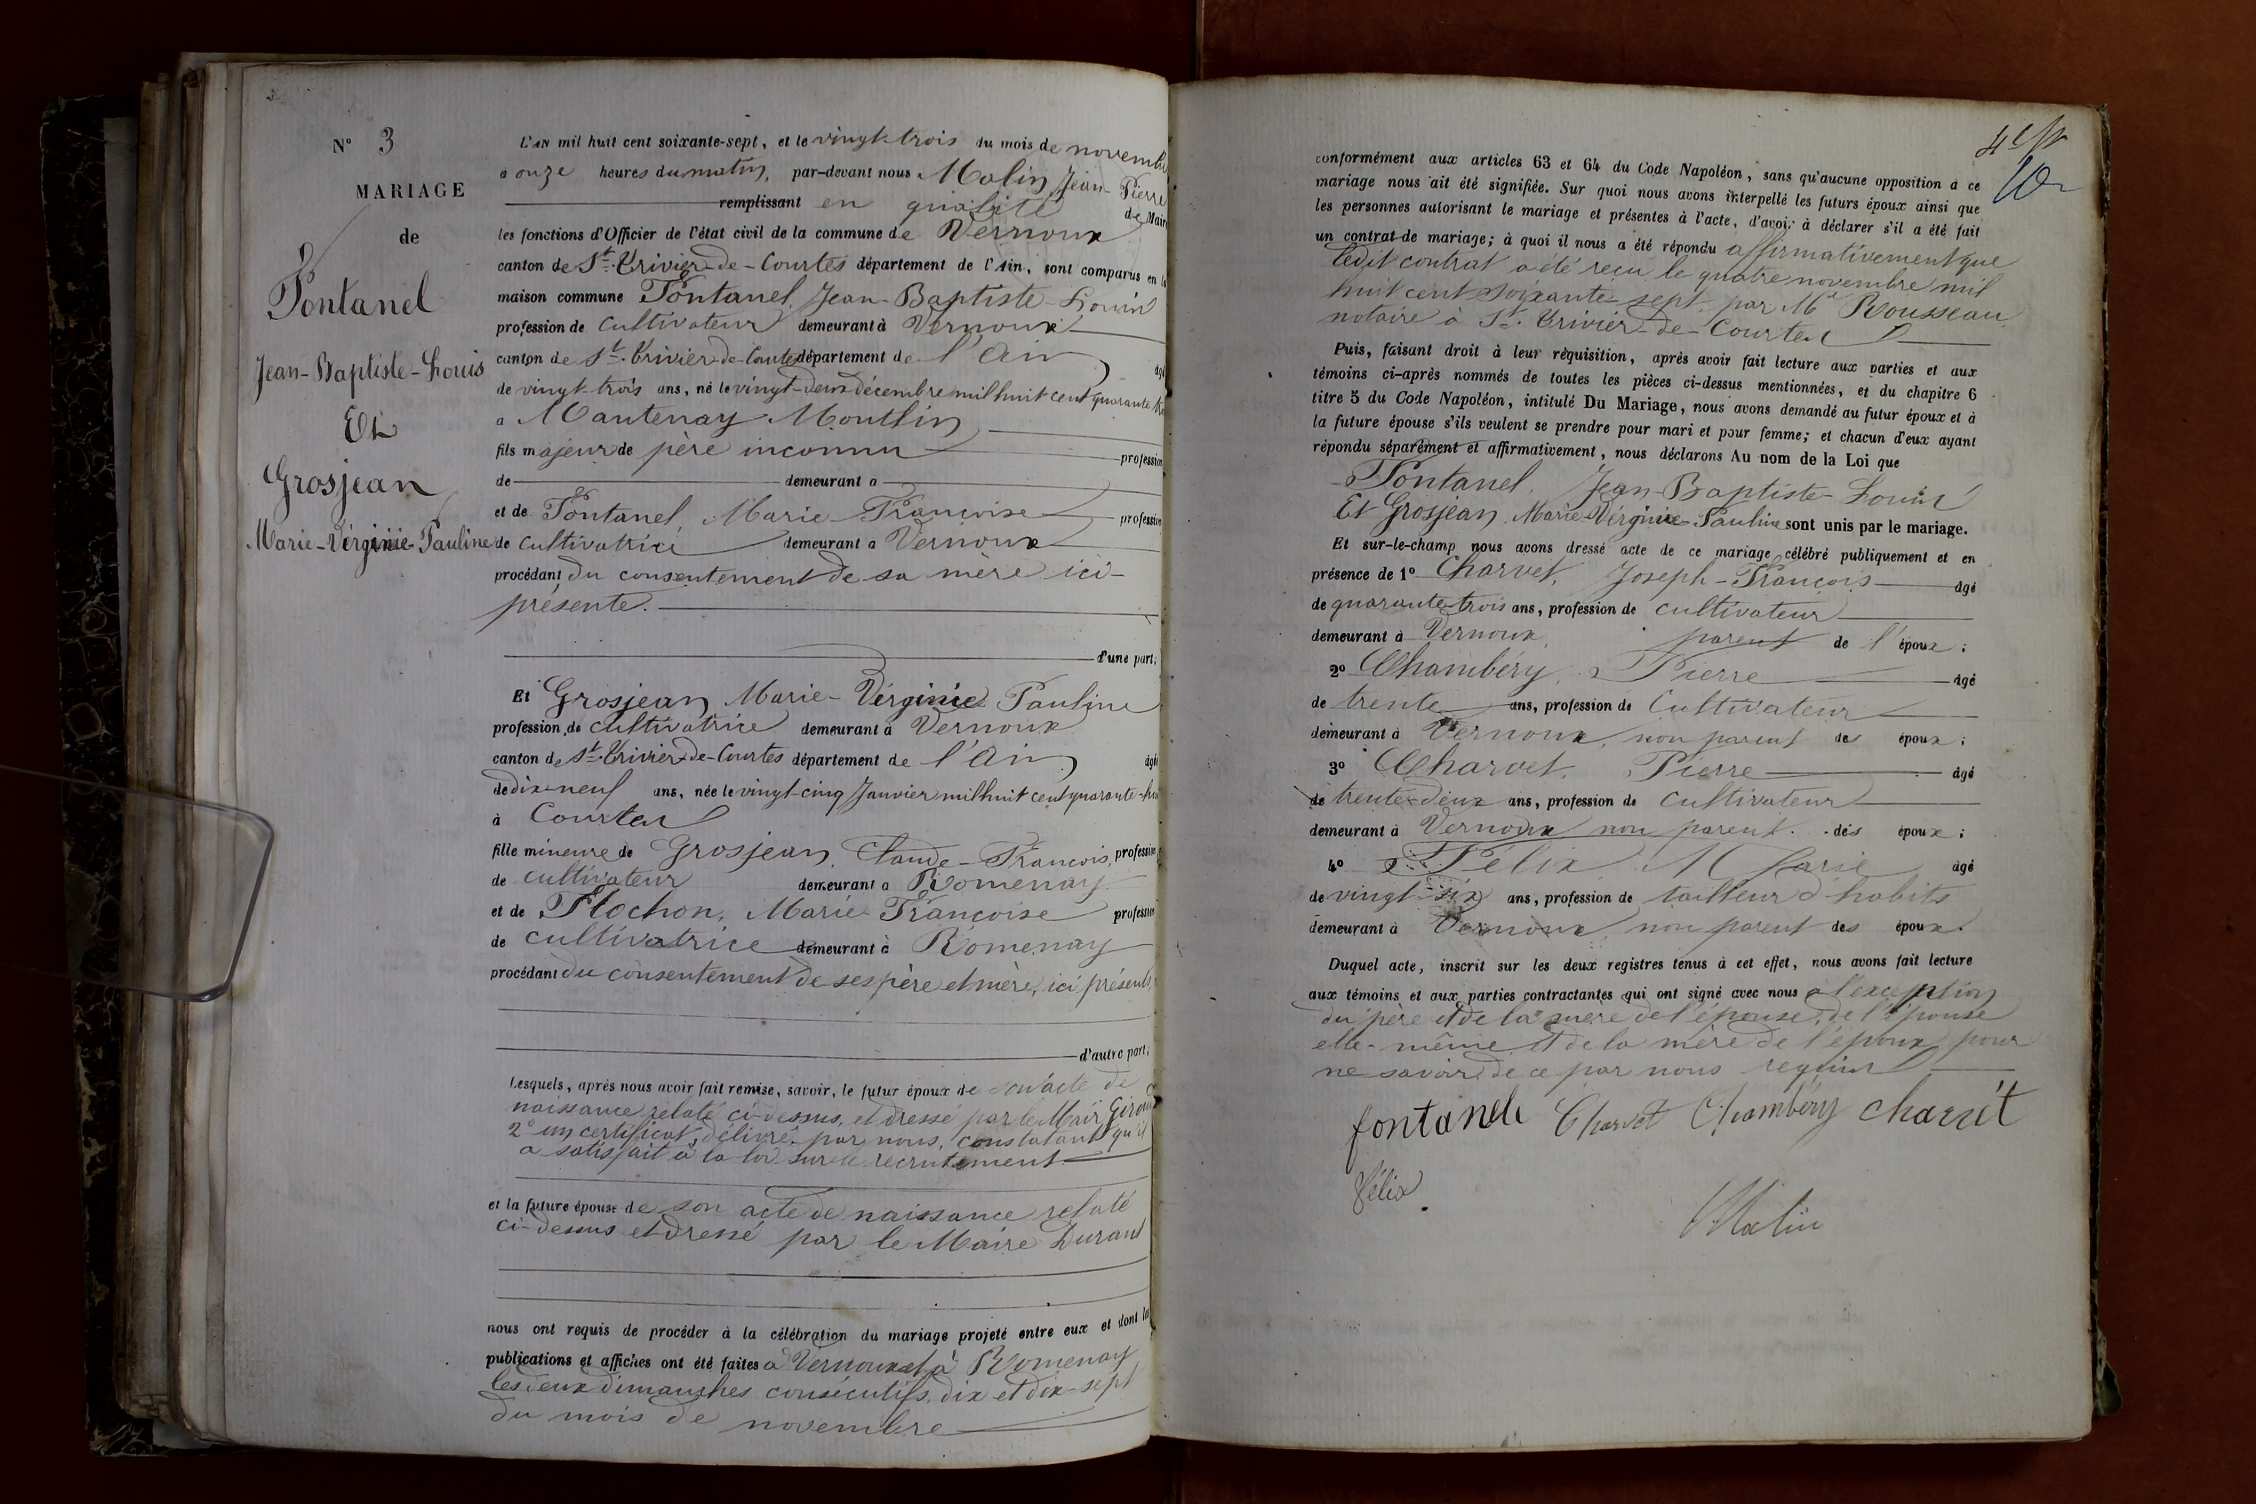 N° 3
MARIAGE
de
Fontanel
Jean-Baptiste-Louis
Et
Grosjean
Marie-Vérginie-Pauline
L'AN mil huit cent soixante-sept, et le vingt-trois du mois de novembre
à onze heures du matin, par-devant nous Malin Jean-Pierre
remplissant en qualité de Maire
les fonctions d'Officier de l'état civil de la commune de Vernoux
canton de St-Trivier-de-Courtes département de l'Ain, sont comparus en la
maison commune Fontanel, Jean-Baptiste-Louis
profession de cultivateur demeurant à Vernoux
canton de St-Trivier-de-Courtes département de l'Ain âgé
de vingt-trois ans, né le vingt-deux décembre mil huit cent quarante
à Mantenay-Montlin
fils majeur de père inconnu profession
de demeurant à
et de Fontanel, Marie-Françoise profession
de cultivatrice demeurant à Vernoux
procédant du consentement de sa mère ici-
présente.
d'une part;
Et Grosjean Marie-Vérginie-Pauline
profession de cultivatrice demeurant à Vernoux
canton de St-Trivier-de-Courtes département de l'Ain âgée
de dix-neuf ans, née le vingt-cinq Janvier mil huit cent quarante-huit
à Courtes
fille mineure de Grosjean, Claude-François, profession
de cultivateur demeurant à Romenay
et de Flochon, Marie-Françoise profession
de cultivatrice demeurant à Romenay
procédant du consentement de ses père et mère, ici présents,
d'autre part;
Lesquels, après nous avoir fait remise, savoir, le futur époux de son acte de
naissance relaté ci-dessus, et dressé par le Mair
2° un certificat délivré par nous, constatant qu'il
a satisfait à la loi sur le recrutement
et la future épouse de son acte de naissance relaté
ci-dessus et dressé par le Maire Durand
nous ont requis de procéder à la célébration du mariage projeté entre eux et dont les
publications et affiches ont été faites à Vernoux et à Romenay
les deux dimanches consécutifs, dix et dix-sept
du mois de novembre
conformément aux articles 63 et 64 du Code Napoléon, sans qu'aucune opposition à ce
mariage nous ait été signifiée. Sur quoi nous avons interpellé les futurs époux ainsi que
les personnes autorisant le mariage et présentes à l'acte, d'avoir à déclarer s'il a été fait
un contrat de mariage; à quoi il nous a été répondu affirmativement que
ledit contrat a été reçu le quatre novembre mil
huit cent soixante-sept par Me Rousseau
notaire à St-Trivier-de-Courtes
Puis, faisant droit à leur réquisition, après avoir fait lecture aux parties et aux
témoins ci-après nommés de toutes les pièces ci-dessus mentionnées, et du chapitre 6
titre 5 du Code Napoléon, intitulé Du Mariage, nous avons demandé au futur époux et à
la future épouse s'ils veulent se prendre pour mari et pour femme; et chacun d'eux ayant
répondu séparément et affirmativement, nous déclarons Au nom de la Loi que
Fontanel, Jean-Baptiste-Louis
Et Grosjean Marie-Vérginie-Pauline sont unis par le mariage.
Et sur-le-champ nous avons dressé acte de ce mariage célébré publiquement et en
présence de 1° Charvet, Joseph-François âgé
de quarante-trois ans, profession de cultivateur
demeurant à Vernoux, parent de l'époux;
2° Chambéry, Pierre âgé
de trente ans, profession de cultivateur
demeurant à Vernoux, non parent des époux;
3° Charvet, Pierre âgé
de trente-deux ans, profession de cultivateur
demeurant à Vernoux non parent des époux;
4° Félix, Marie âgé
de vingt-six ans, profession de tailleur d'habits
demeurant à Vernoux, non parent des époux.
Duquel acte, inscrit sur les deux registres tenus à cet effet, nous avons fait lecture
aux témoins et aux parties contractantes qui ont signé avec nous à l'exception
du père et de la mère de l'épouse, de l'épouse
elle-même et de la mère de l'époux pour
ne savoir de ce par nous requis
fontanele Charvet Chambéry charvét
Félix
Malin